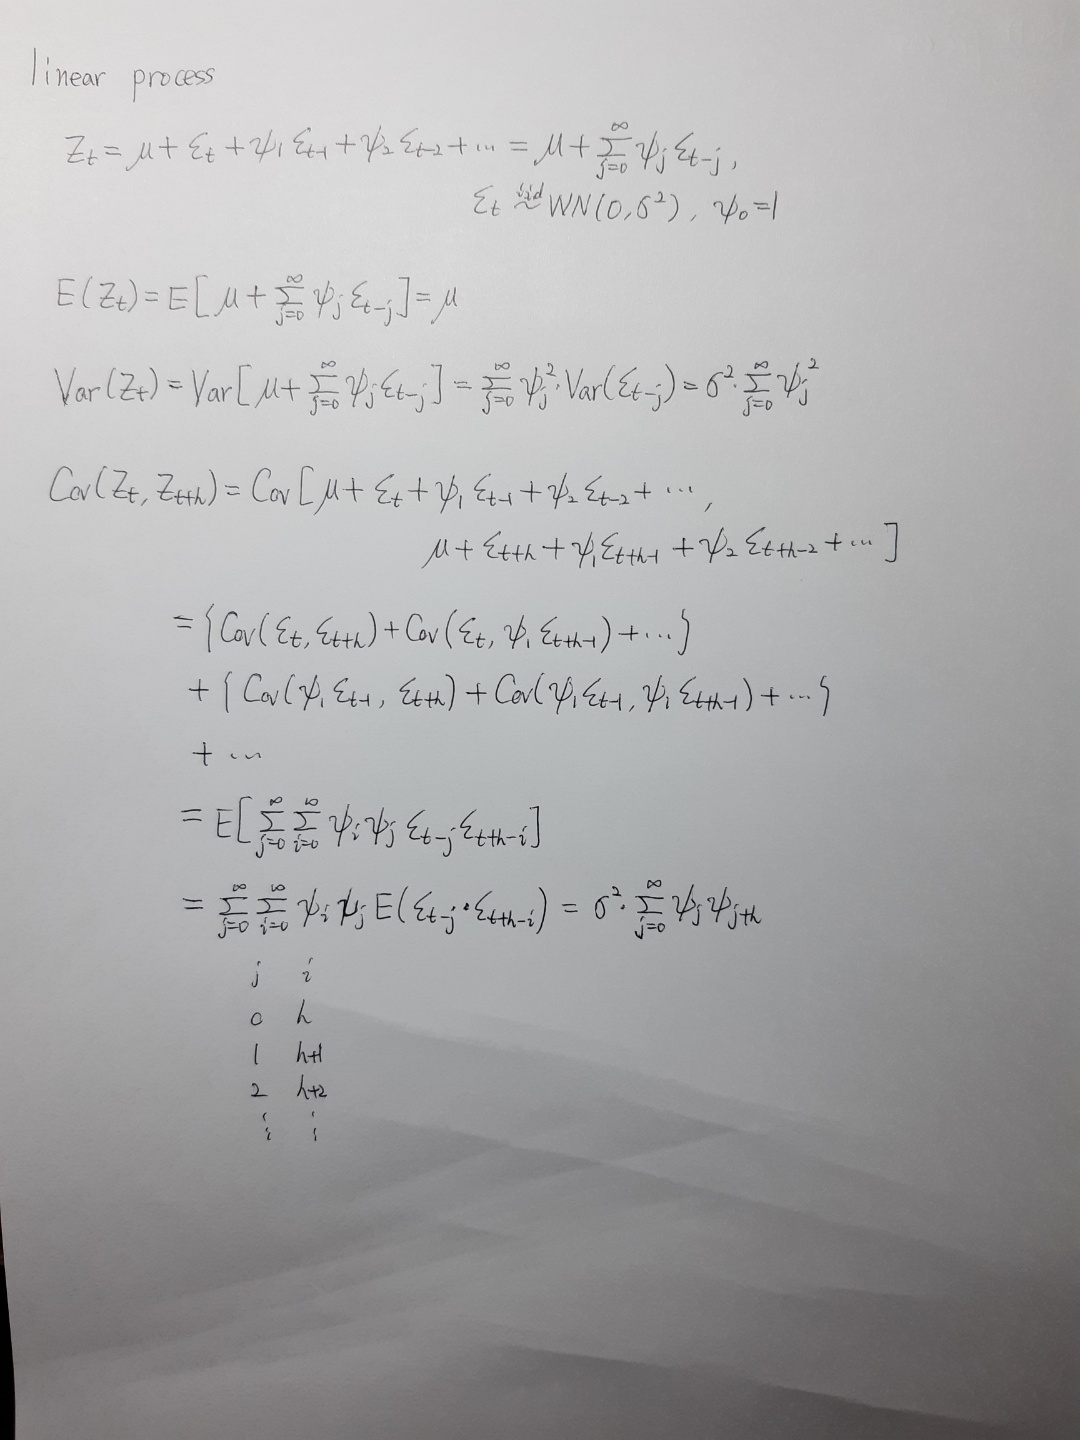 linear process
Z_t = μ + ε_t + ψ_1 ε_{t-1} + ψ_2 ε_{t-2} + ··· = μ + ∑_{j=0}^{∞} ψ_j ε_{t-j},
ε_t ~^{iid} WN(0, σ²), ψ_0 = 1
E(Z_t) = E[μ + ∑_{j=0}^{∞} ψ_j ε_{t-j}] = μ
Var(Z_t) = Var[μ + ∑_{j=0}^{∞} ψ_j ε_{t-j}] = ∑_{j=0}^{∞} ψ_j² · Var(ε_{t-j}) = σ² · ∑_{j=0}^{∞} ψ_j²
Cov(Z_t, Z_{t+h}) = Cov[μ + ε_t + ψ_1 ε_{t-1} + ψ_2 ε_{t-2} + ··· ,
μ + ε_{t+h} + ψ_1 ε_{t+h-1} + ψ_2 ε_{t+h-2} + ···]
= {Cov(ε_t, ε_{t+h}) + Cov(ε_t, ψ_1 ε_{t+h-1}) + ···}
+ {Cov(ψ_1 ε_{t-1}, ε_{t+h}) + Cov(ψ_1 ε_{t-1}, ψ_1 ε_{t+h-1}) + ···}
+ ···
= E[∑_{j=0}^{∞} ∑_{i=0}^{∞} ψ_i ψ_j ε_{t-j} ε_{t+h-i}]
= ∑_{j=0}^{∞} ∑_{i=0}^{∞} ψ_i ψ_j E(ε_{t-j} · ε_{t+h-i}) = σ² · ∑_{j=0}^{∞} ψ_j ψ_{j+h}
j i
0 h
1 h+1
2 h+2
⋮ ⋮